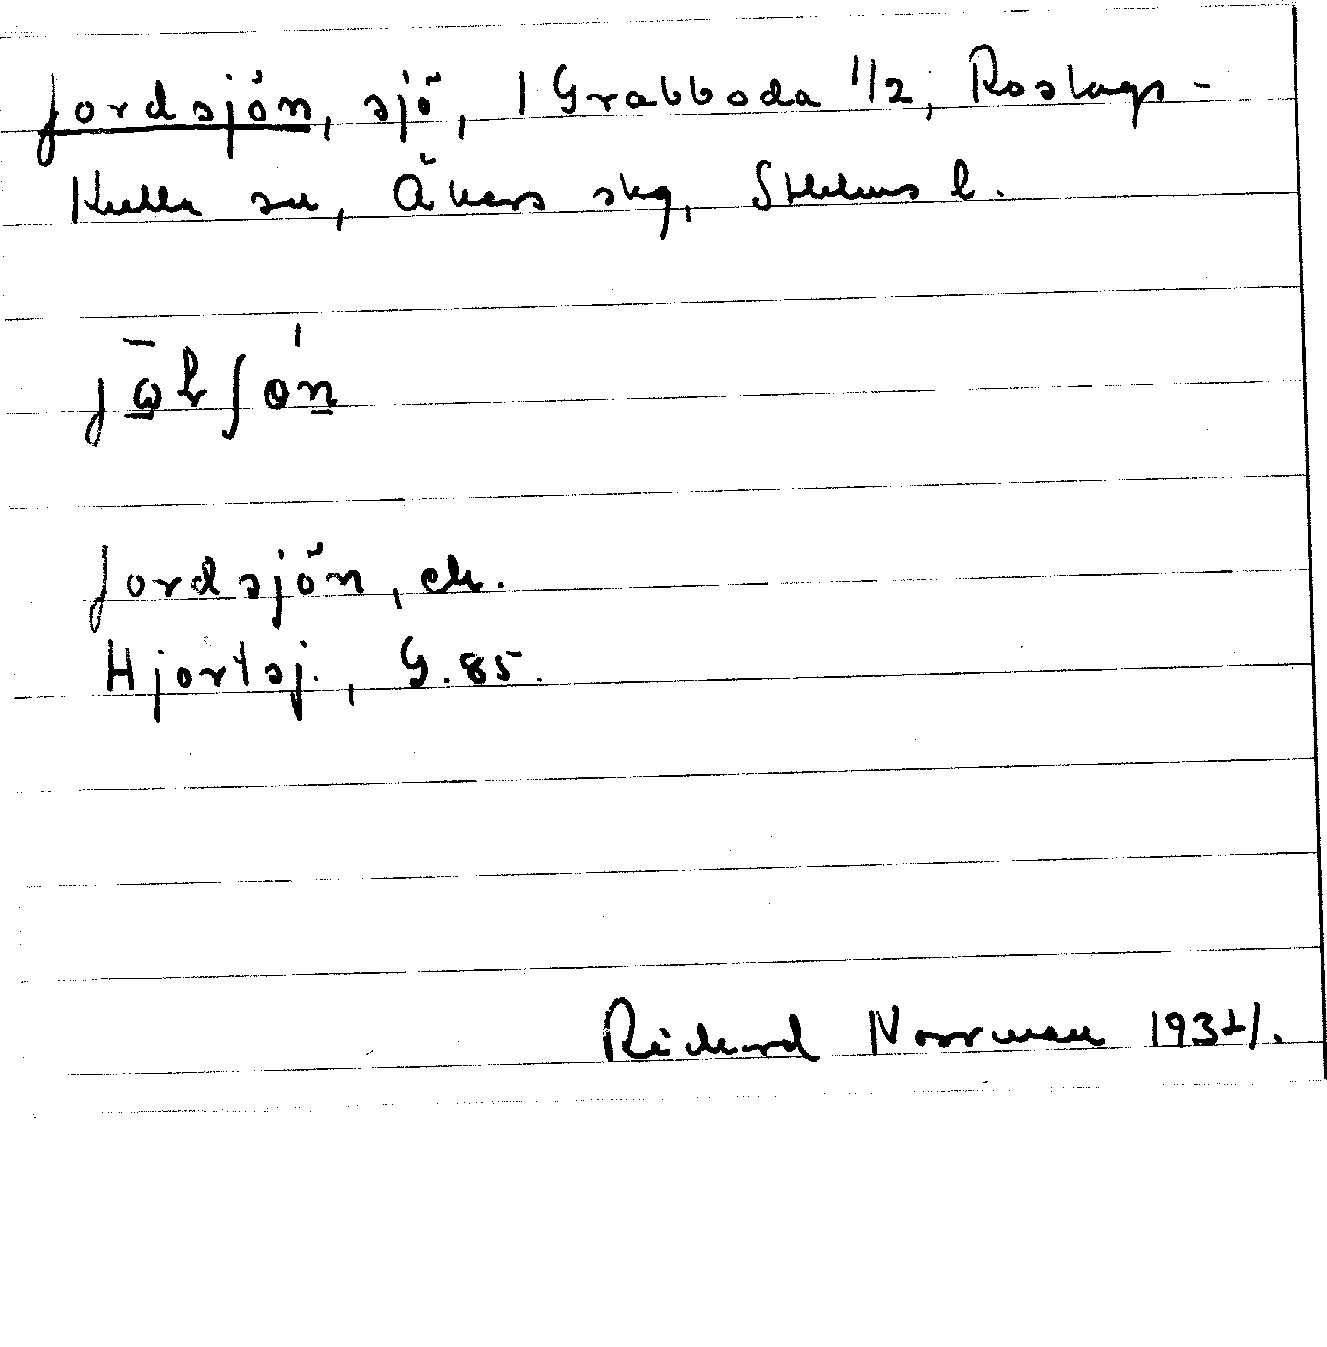 Jordsjön, sjö, 1 Grabboda 1/2, Roslags-
Kulla sn, Åkers skg, Sthlms l.
Jordsjön, ek.
Hjortsj., G. 85.
Richard Norrman 1934.